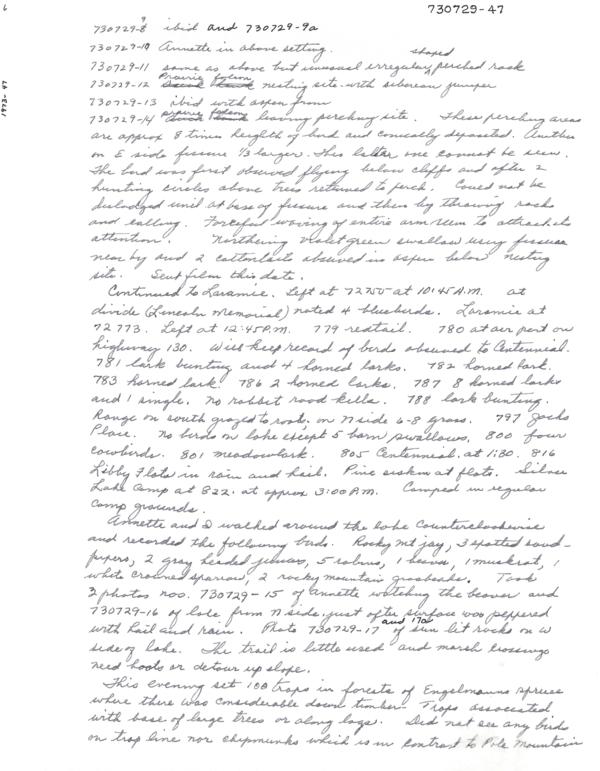 6
730729-47
1973-47
730729-8 9 ibid and 730729-9a
730729-10 Annette in above setting.
730729-11 same as above but unusual irregular shaped perched rock
730729-12 Prairie falcon nesting site with siberean juniper
730729-13 ibid with aspen from
730729-14 prairie falcon leaving perching site. These perching areas
are approx 8 times heighth of bird and conically deposited. Another
on E side fissure 1/3 larger. This latter one cannot be seen.
The bird was first observed flying below cliffs and after 2
hunting circles above trees returned to perch. Could not be
dislodged until at base of fissure and then by throwing rocks
and calling. Forceful waving of entire arm seem to attract its
attention. Northering violet green swallow using fissures
near by and 2 cottontails observed in aspen below nesting
site. Sent film this date.
Continued to Laramie. Left at 72755 at 10:45 A.M. at
divide (Lincoln Memorial) noted 4 bluebirds. Laramie at
72773. Left at 12:45 P.M. 779 redtail. 780 at air port on
highway 130. Will keep record of birds observed to Centennial.
781 lark bunting and 4 horned larks. 782 horned lark.
783 horned lark. 786 2 horned larks. 787 8 horned larks
and 1 single. No rabbit road kills. 788 lark bunting.
Range on south grazed to roots, on N side 6-8 grass. 797
Place. No birds on lake except 5 barn swallows. 800 four
cowbirds. 801 meadowlark. 805 Centennial at 1:30. 816
Libby Flats in rain and hail. Pine siskin at flats. Silver
Lake Camp at 822. at approx 3:00 P.M. Camped in regular
camp grounds.
Annette and I walked around the lake counterclockwise
and recorded the following birds. Rocky Mt jay, 3 spotted sand-
pipers, 2 gray headed juncos, 5 robins, 1 beaver, 1 muskrat, 1
white crowned sparrow, 2 rocky mountain grosbeaks. Took
2 photos nos. 730729-15 of Annette watching the beaver and
730729-16 of lake from N side, just after surface was peppered
with hail and rain. Photo 730729-17 and 17a of sun lit rocks on W
side of lake. The trail is little used and marsh crossings
need boots or detour up slope.
This evening set 100 traps in forests of Engelmanns spruce
where there was considerable down timber. Traps associated
with base of large trees or along logs. Did not see any birds
on trap line nor chipmunks which is in contrast to Pole Mountain